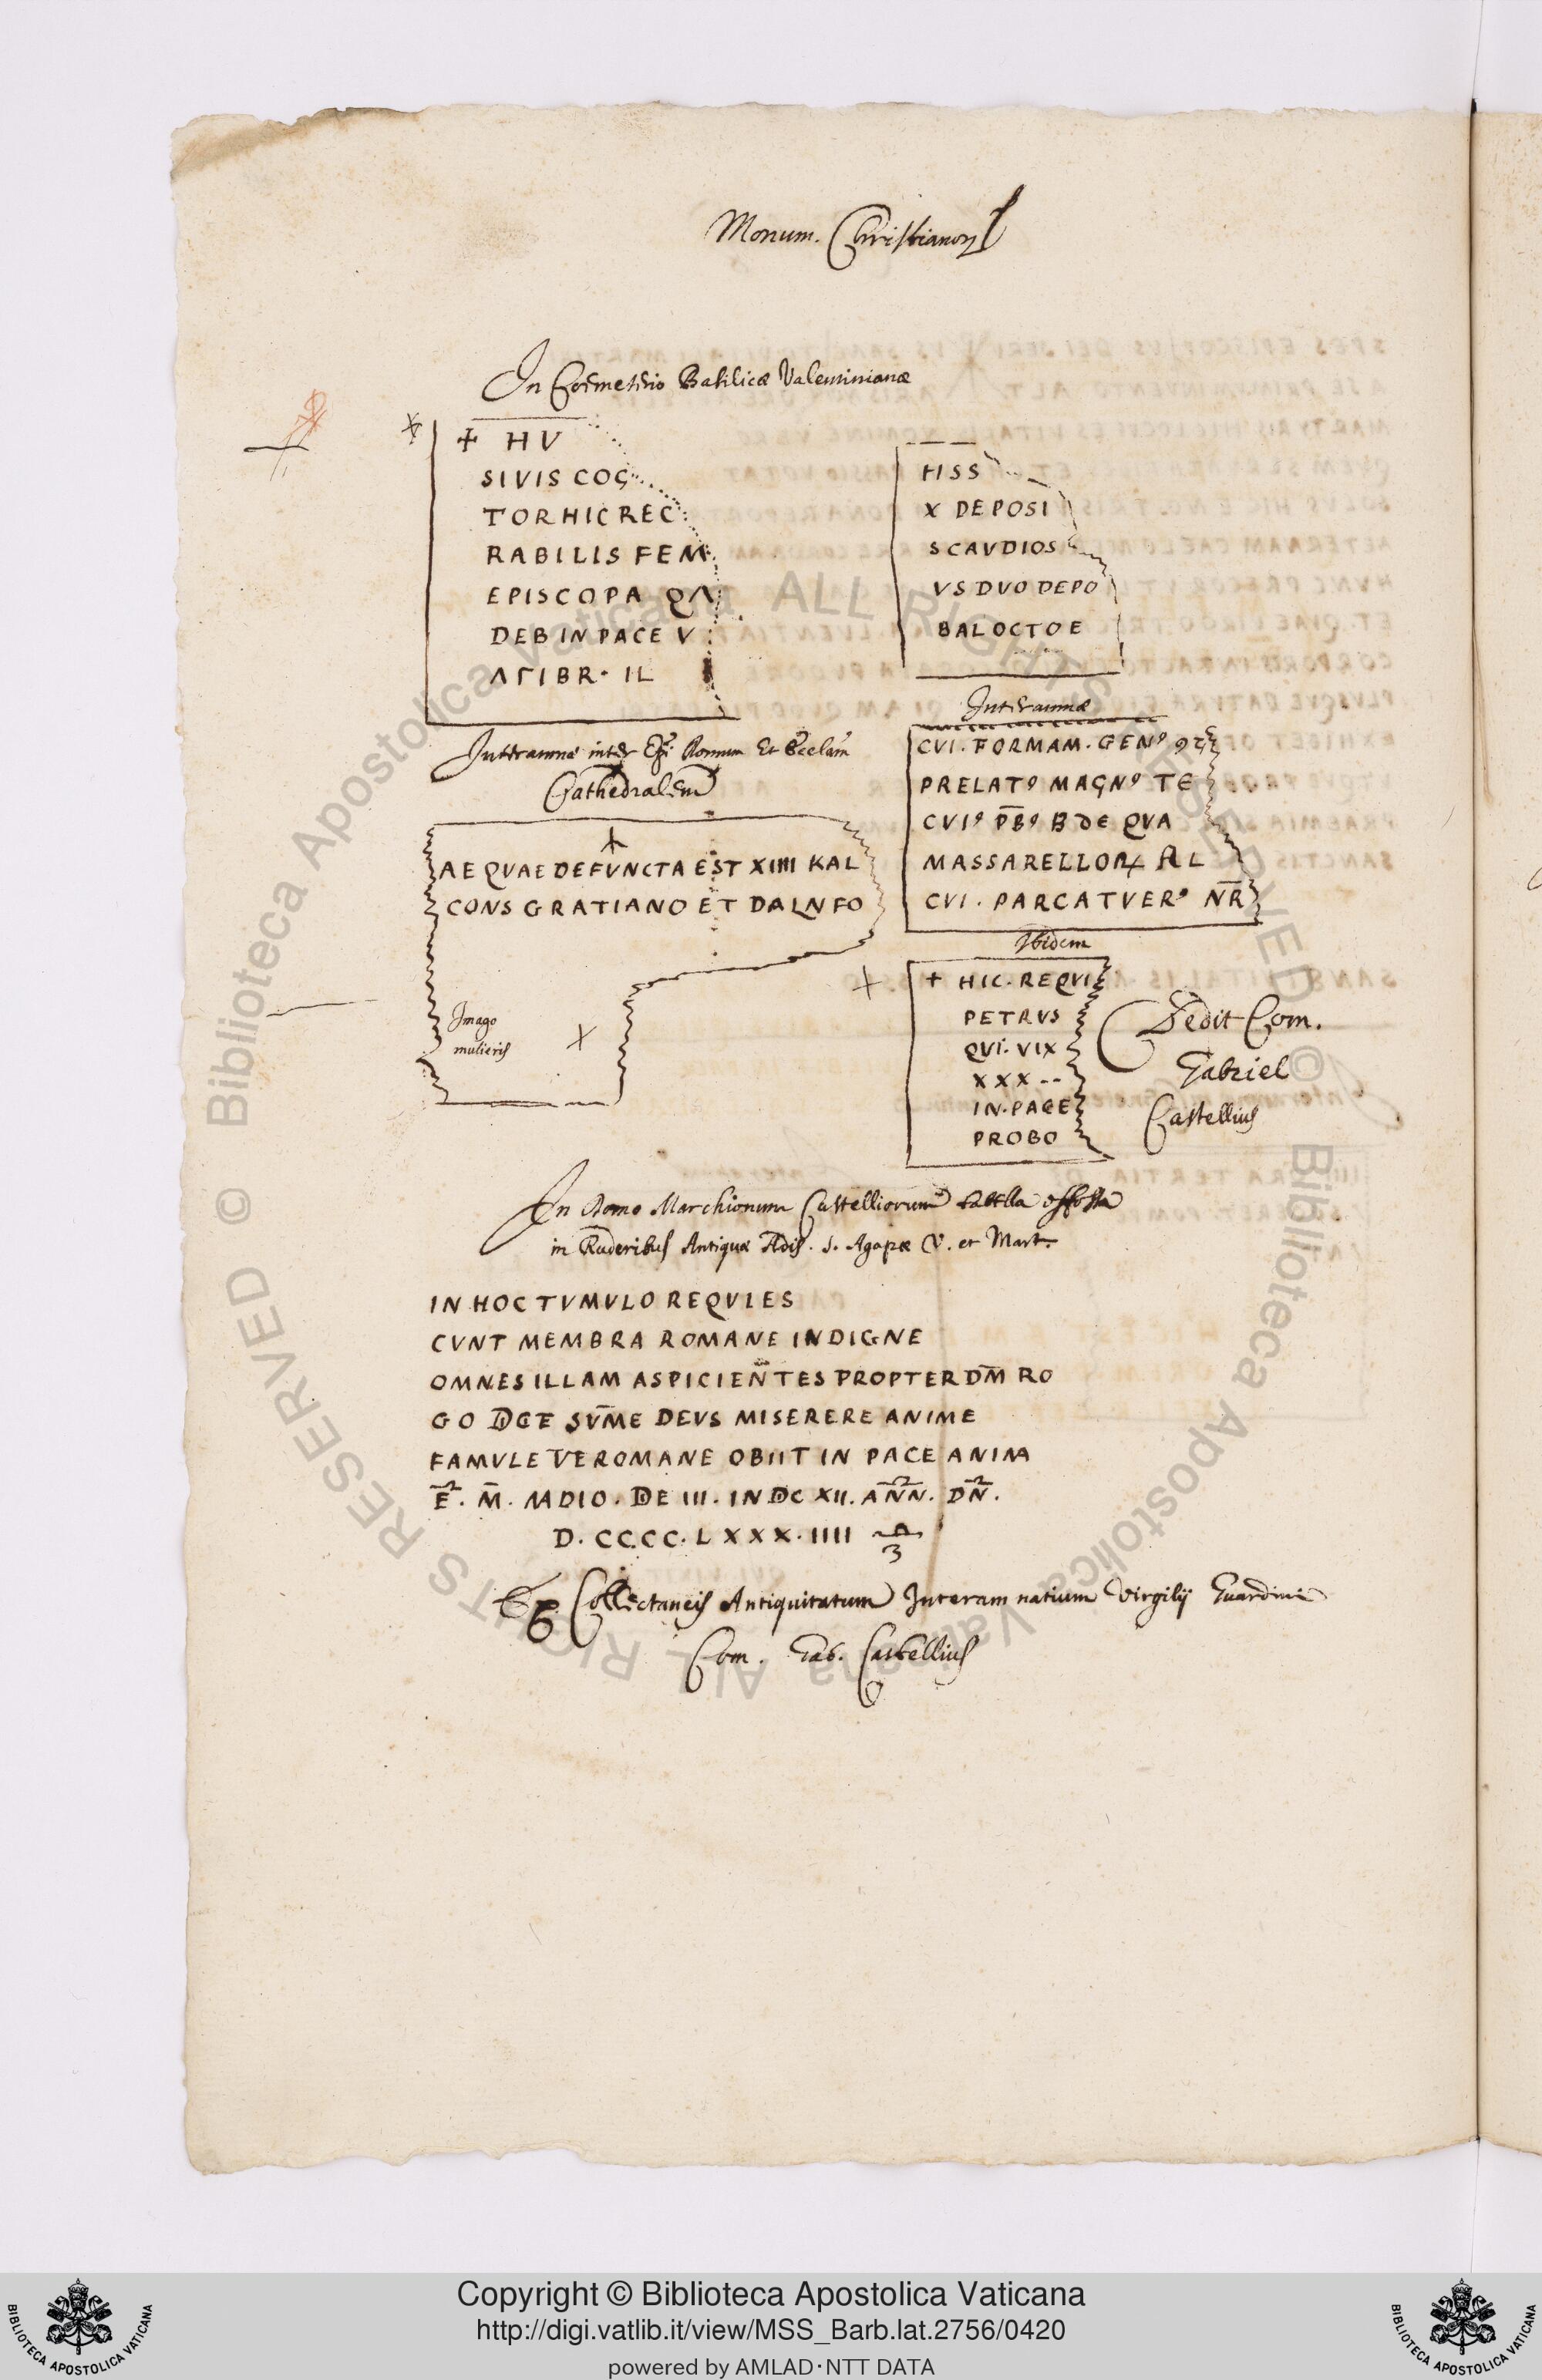 Monum. Christianor
In Coemeterio Basilicæ Valentinianæ
+ HV
SIVIS COG
TOR HIC REC
RABILIS FEM
EPISCOPA QΛ
DEB IN PACE V
ΛΓIBR · IL
HSS
X DEPOSI
SCAVDIOS
VS DVO DEPO
BAL OCTO E
Interamnæ inter Domum Et Ecclam
Cathedralem
AE QVAE DEFVNCTA EST XIIII KAL
CONS GRATIANO ET DALNFO
Imago
mulieris
Interamnæ
CVI · FORMAM · GENꝰ
PRELATꝰ MAGNꝰ TE
CVIꝰ P̄Bꝰ B DE QVA
MASSARELLOꝝ AL
CVI · PARCAT VERꝰ N̄R̄
Ibidem
+ HIC · REQVI
PETRVS
QVI · VIX
XXX--
IN · PACE
PROBO
Dedit Com.
Gabriel
Castellius
In Domo Marchionum Castelliorum tabella effossa
in Ruderibus Antiquæ Ædis. S. Agapæ V. et Mart.
IN HOC TVMVLO REQVIES
CVNT MEMBRA ROMANE INDIGNE
OMNES ILLAM ASPICIEN̄TES PROPTER DM̄ RO
GO DCE SV̄ME DEVS MISERERE ANIME
FAMVLE TVE ROMANE OBIIT IN PACE ANIMA
E · M̄ · MADIO · DE III · INDC XII · ANN · DN ·
D · CCCC · LXXX · IIII
Ex Collectaneis Antiquitatum Interamnatium Virgilij Guardini
Com. Gab. Castellius
Copyright © Biblioteca Apostolica Vaticana
http://digi.vatlib.it/view/MSS_Barb.lat.2756/0420
powered by AMLAD·NTT DATA
BIBLIOTECA APOSTOLICA VATICANA
BIBLIOTECA APOSTOLICA VATICANA
© Biblioteca Apostolica Vaticana ALL RIGHTS RESERVED © Biblioteca Apostolica Vaticana ALL RIGHTS RESERVED